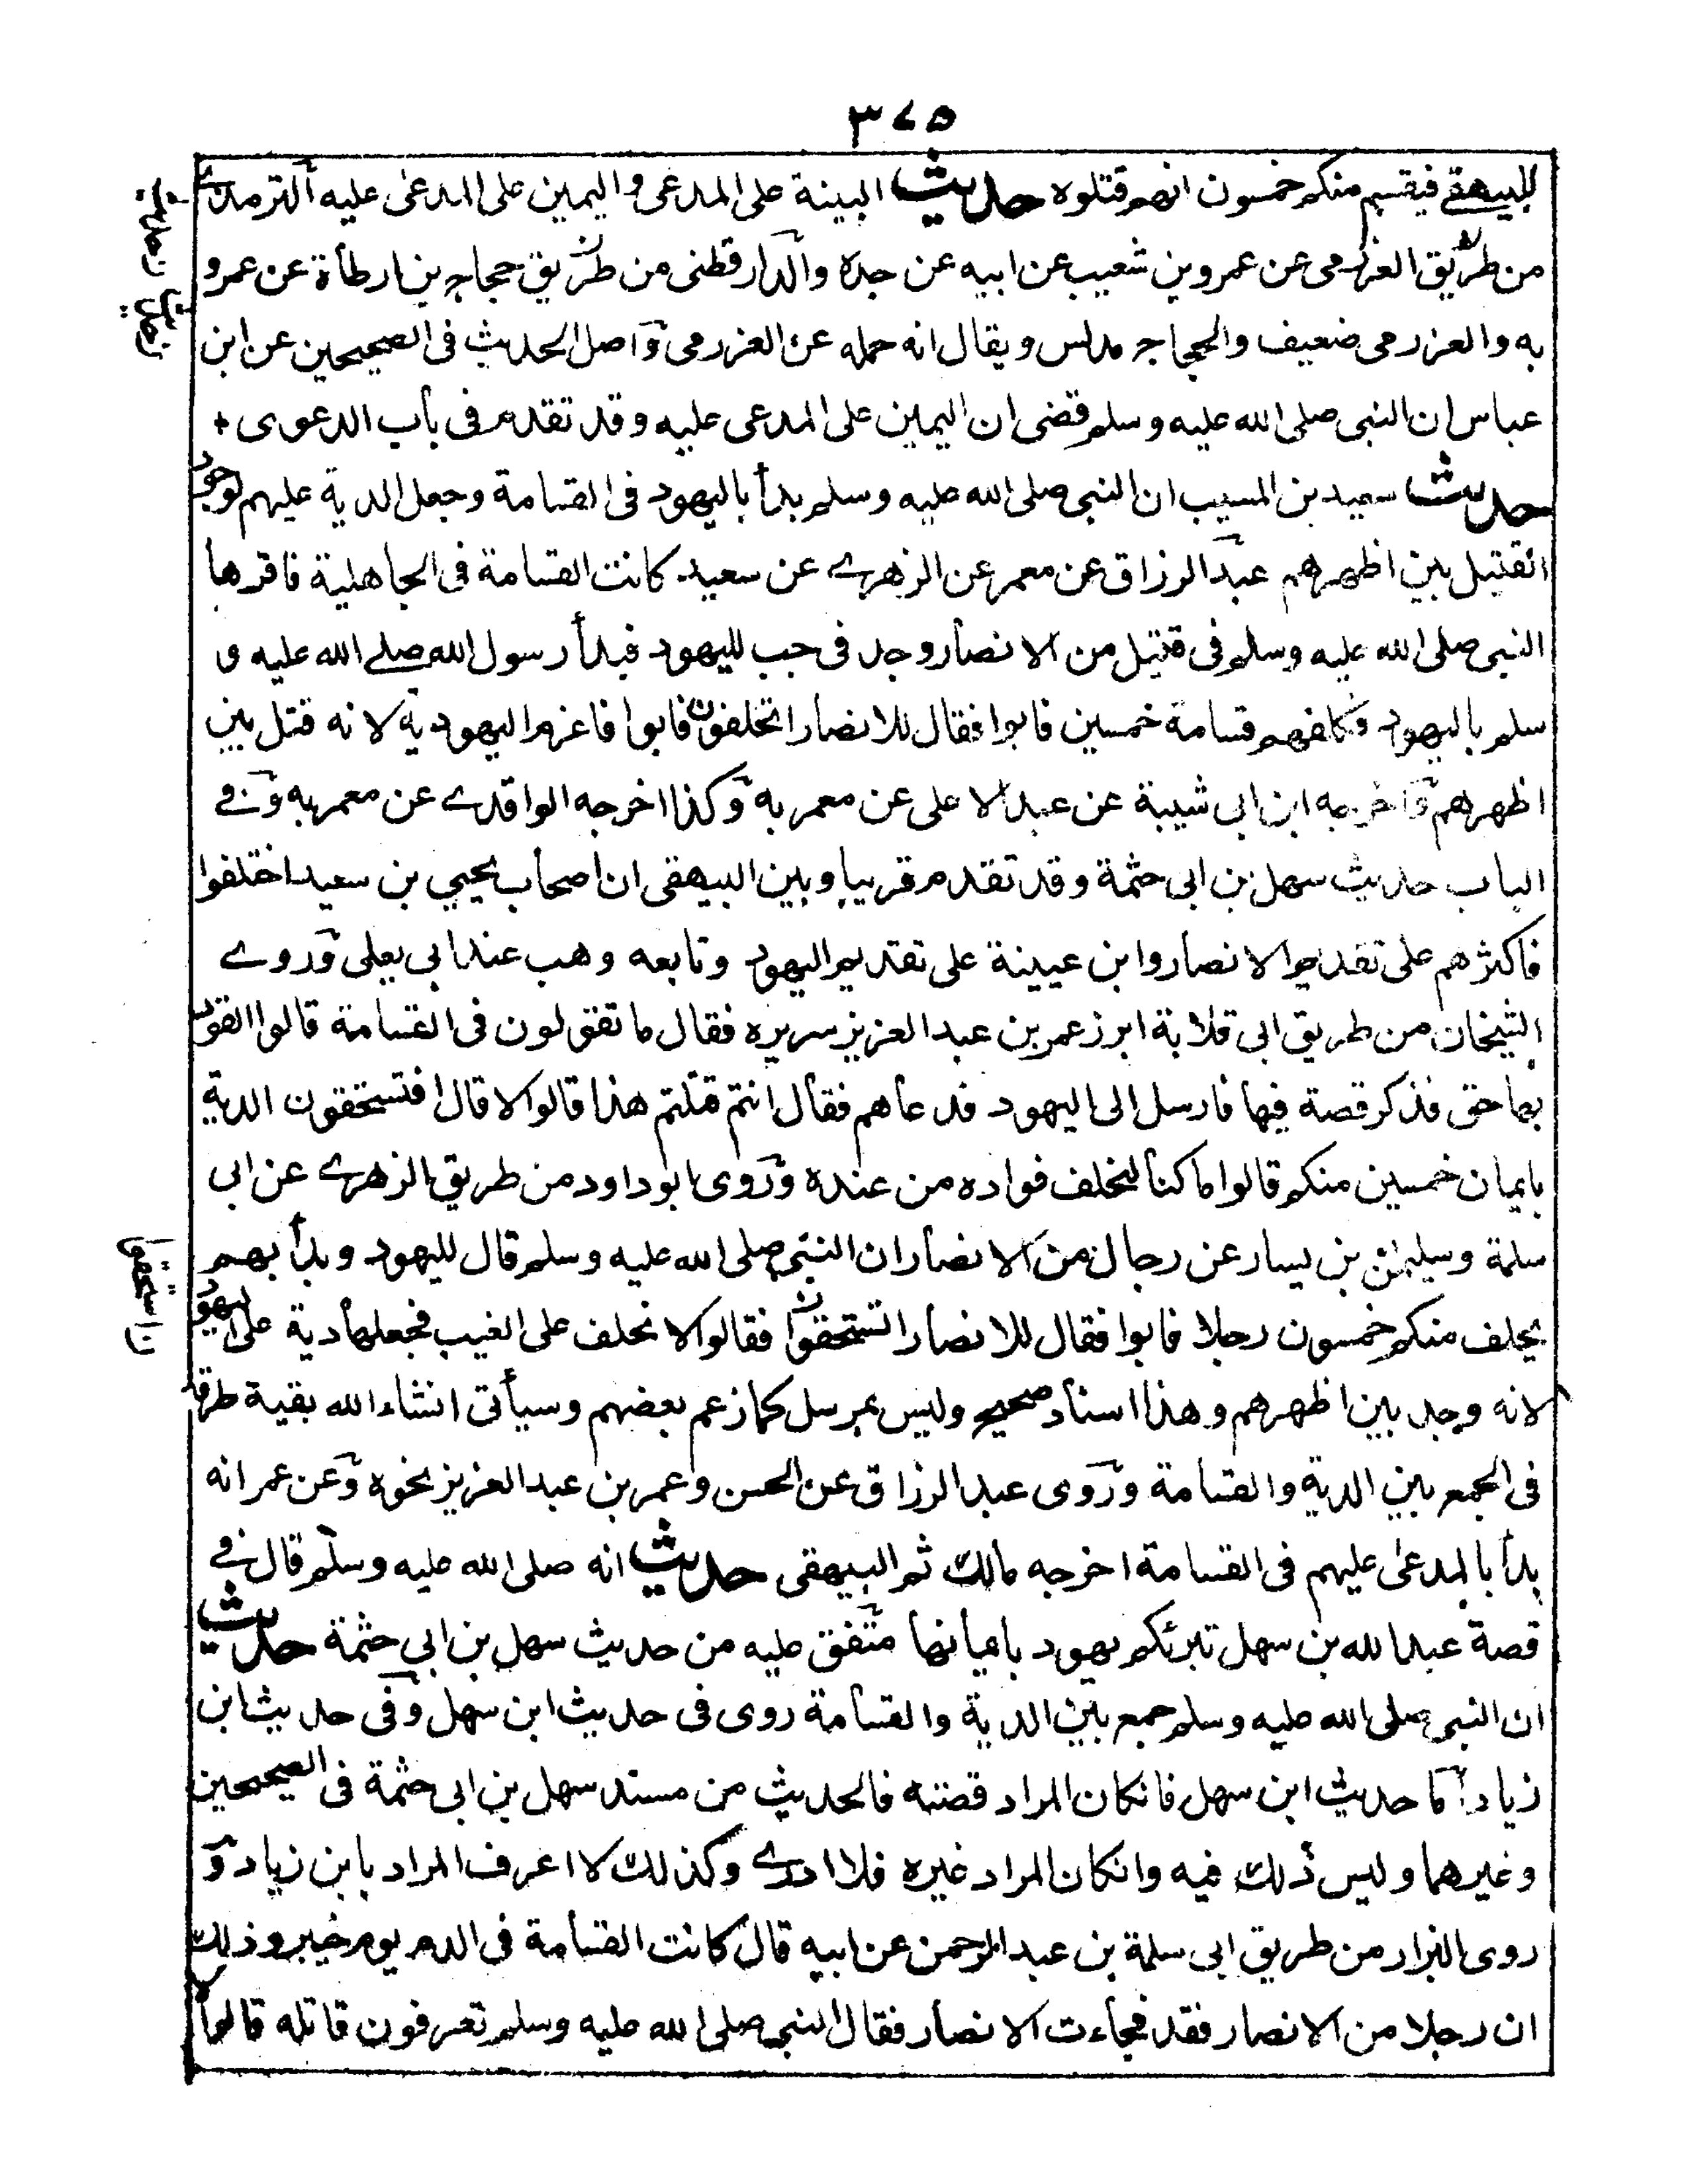 ٣٧٥
للبيهقے فيقسم منكم خمسون انهم قتلوه حديث البينة على المدعى واليمين على المدعى عليه الترمذے
من طريق العزرمى عن عمرو بن شعيب عن ابيه عن جده والدارقطنى من طريق حجاج بن ارطأة عن عمرو
به والعزرمى ضعيف والحجاج مدلس ويقال انه حمله عن العزرمى واصل الحديث فى الصحيحين عن ابن
عباس ان النبى صلى الله عليه وسلم قضى ان اليمين على المدعى عليه وقد تقدم فى باب الدعوى +
حديث سعيد بن المسيب ان النبى صلى الله عليه وسلم بدأ باليهود فى القسامة وجعل الدية عليهم لوجود
القتيل بين اظهرهم عبد الرزاق عن معمر عن الزهرے عن سعيد كانت القسامة فى الجاهلية فاقرها
النبى صلى الله عليه وسلم فى قتيل من الانصار وجد فى جب لليهود فبدأ رسول الله صلے الله عليه و
سلم باليهود وكلفهم قسامة خمسين فابوا فقال للانصار اتحلفون فابوا فاغرم اليهود دية لانه قتل بين
اظهرهم واخرجه ابن ابى شيبة عن عبد الاعلى عن معمر به وكذا اخرجه الواقدے عن معمر به وفے
الباب حديث سهل بن ابى حثمة وقد تقدم قريبا وبين البيهقى ان اصحاب يحيي بن سعيد اختلفوا
فاكثرهم على تقديم الانصار وابن عيينة على تقديم اليهود وتابعه وهب عند ابي يعلى وروے
الشيخان من طريق ابى قلابة ابرز عمر بن عبد العزيز سريره فقال ما تقولون فى القسامة قالوا القود
بها حق فذكر قصة فيها فارسل الى اليهود فدعاهم فقال انتم قتلتم هذا قالوا لا قال افتستحقون الدية
بايمان خمسين منكم قالوا ما كنا لنحلف فوداه من عنده وروى ابو داود من طريق الزهرے عن ابى
سلمة وسليمن بن يسار عن رجال من الانصار ان النبى صلى الله عليه وسلم قال لليهود وبدأ بهم
يحلف منكم خمسون رجلا فابوا فقال للانصار اتستحقون فقالوا لا نحلف على الغيب فجعلها دية على اليهود
لانه وجد بين اظهرهم وهذا اسناد صحيح وليس بمرسل كما زعم بعضهم وسيأتى انشاء الله بقية طرقه
فى الجمع بين الدية والقسامة وروى عبد الرزاق عن الحسن وعمر بن عبد العزيز نحوه وعن عمر انه
بدأ بالمدعى عليهم فى القسامة اخرجه مالك ثم البيهقى حديث انه صلى الله عليه وسلم قال فے
قصة عبد الله بن سهل تبرئكم يهود بايمانها متفق عليه من حديث سهل بن ابى حثمة حديث
ان النبى صلى الله عليه وسلم جمع بين الدية والقسامة روى فى حديث ابن سهل وفى حديث ابن
زياد اما حديث ابن سهل فانكان المراد قصته فالحديث من مسند سهل بن ابى حثمة فى الصحيحين
وغيرهما وليس ذلك فيه وانكان المراد غيره فلا ادرے وكذلك لا اعرف المراد بابن زياد و
روى البزار من طريق ابى سلمة بن عبد الرحمن عن ابيه قال كانت القسامة فى الدم يوم خيبر وذلك
ان رجلا من الانصار فقد فجاءت الانصار فقال النبى صلى الله عليه وسلم تعرفون قاتله قالوا لا